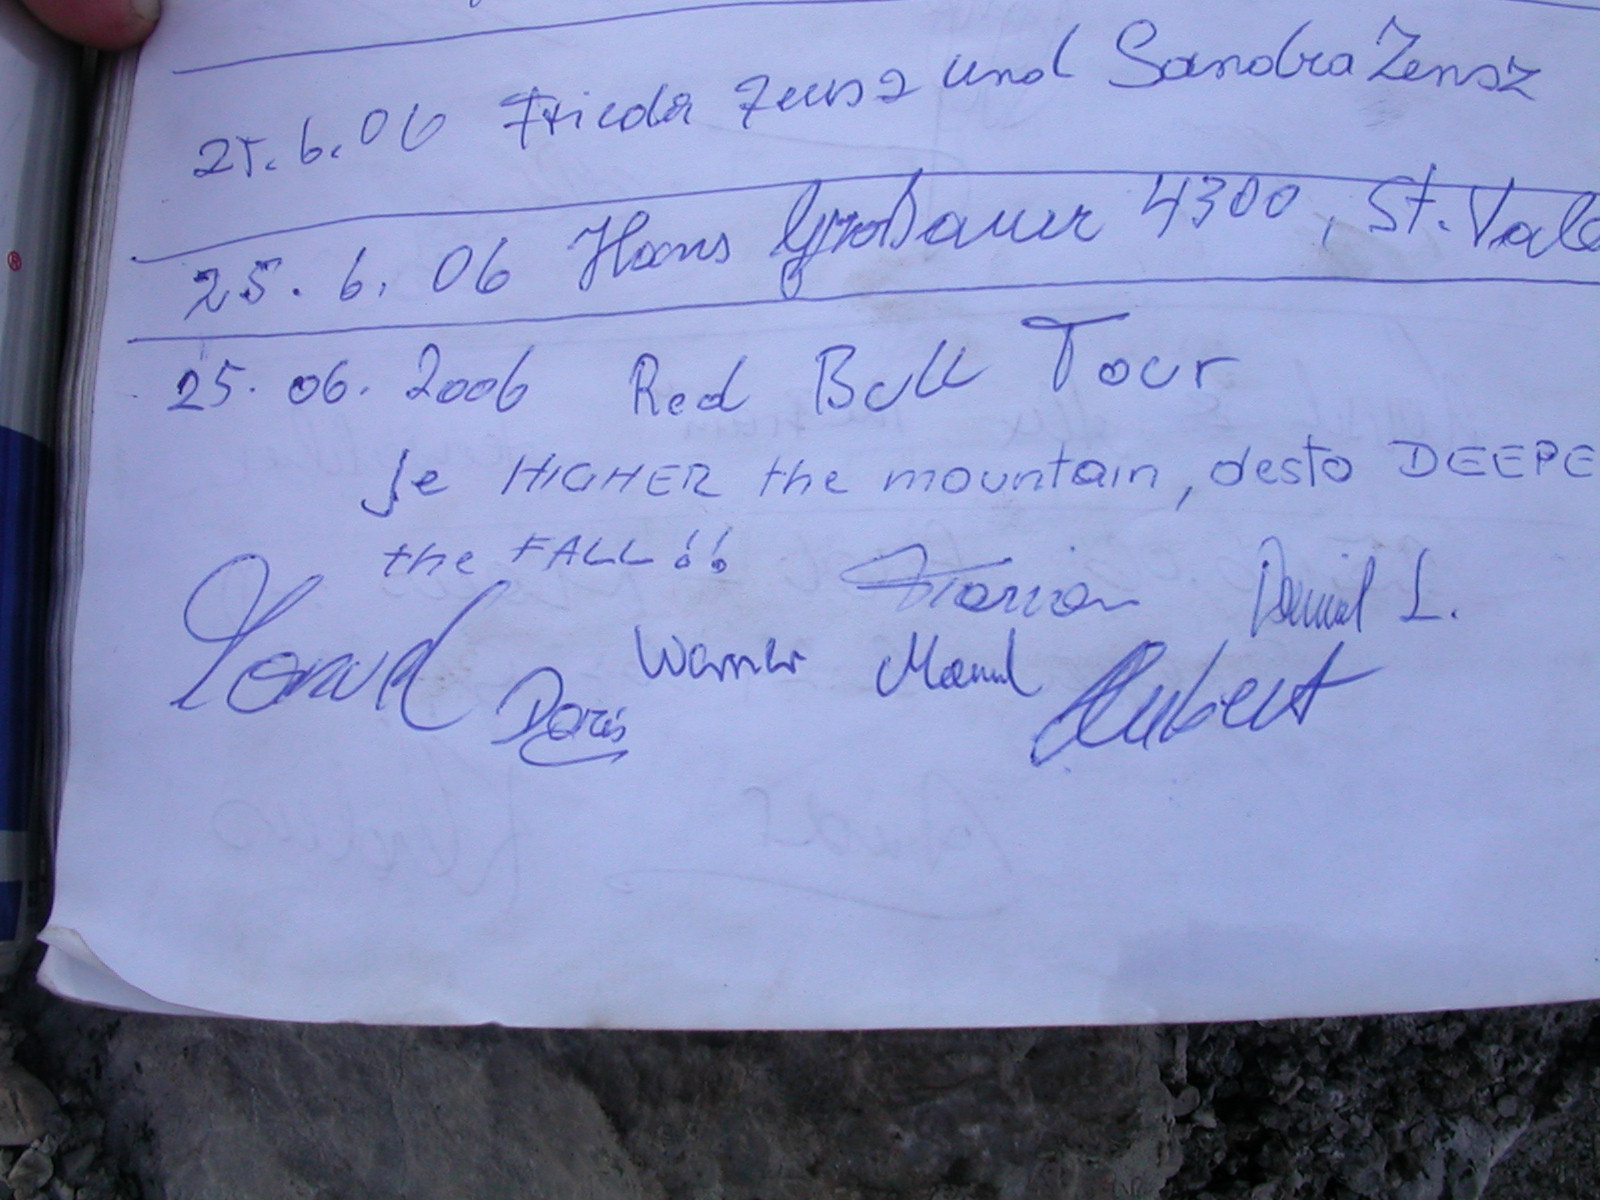 25.6.06 Frieda Zensz und Sandra Zensz
25.6.06 Hans Großauer 4300, St. Vale
25.06.2006 Red Bull Tour
Je HIGHER the mountain, desto DEEPE
the FALL!!
Florian Daniel L.
Doris Werner Manuel Hubert
®